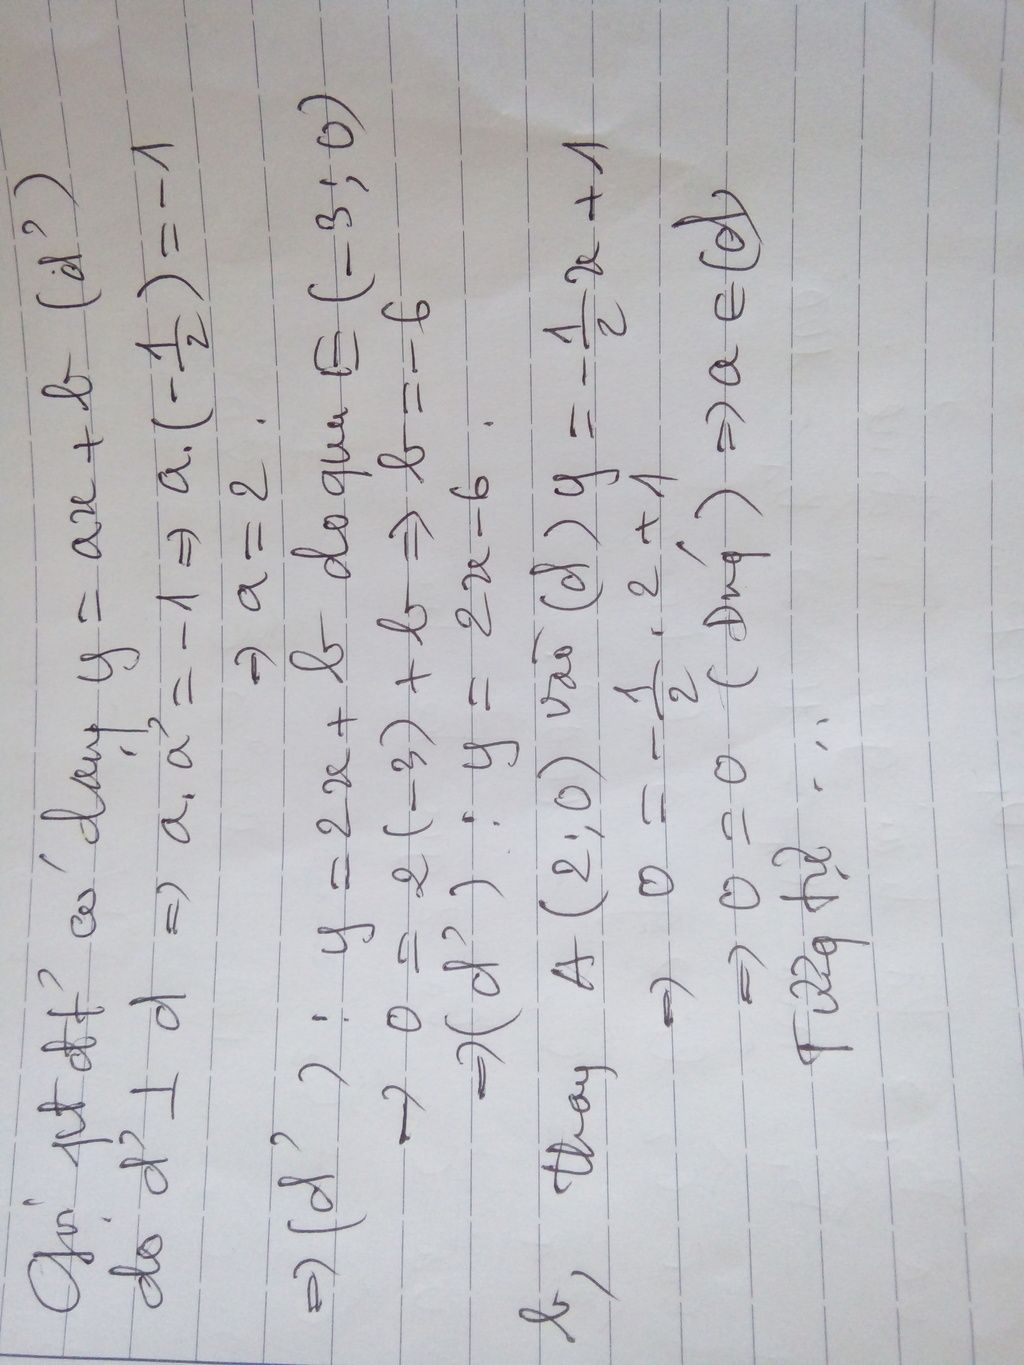 Gọi pt đt có dạng y = ax + b (d')
do d' ⊥ d => a.a' = -1 => a.(-1/2) = -1
=> a = 2.
=> (d') : y = 2x + b do qua E (-3; 0)
=> 0 = 2(-3) + b => b = -6
=> (d') : y = 2x - 6.
b, thay A (2; 0) vào (d) y = -1/2x + 1
=> 0 = -1/2 . 2 + 1
=> 0 = 0 (Đúng) => a ∈ (d)
Tương tự ...